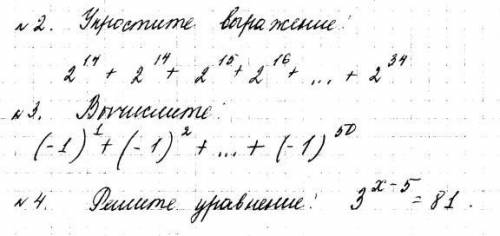 №2. Упростите выражение:
2¹⁴ + 2¹⁴ + 2¹⁵ + 2¹⁶ + ... + 2³⁴
№3. Вычислите:
(-1)¹ + (-1)² + ... + (-1)⁵⁰
№4. Решите уравнение: 3ˣ⁻⁵ = 81.